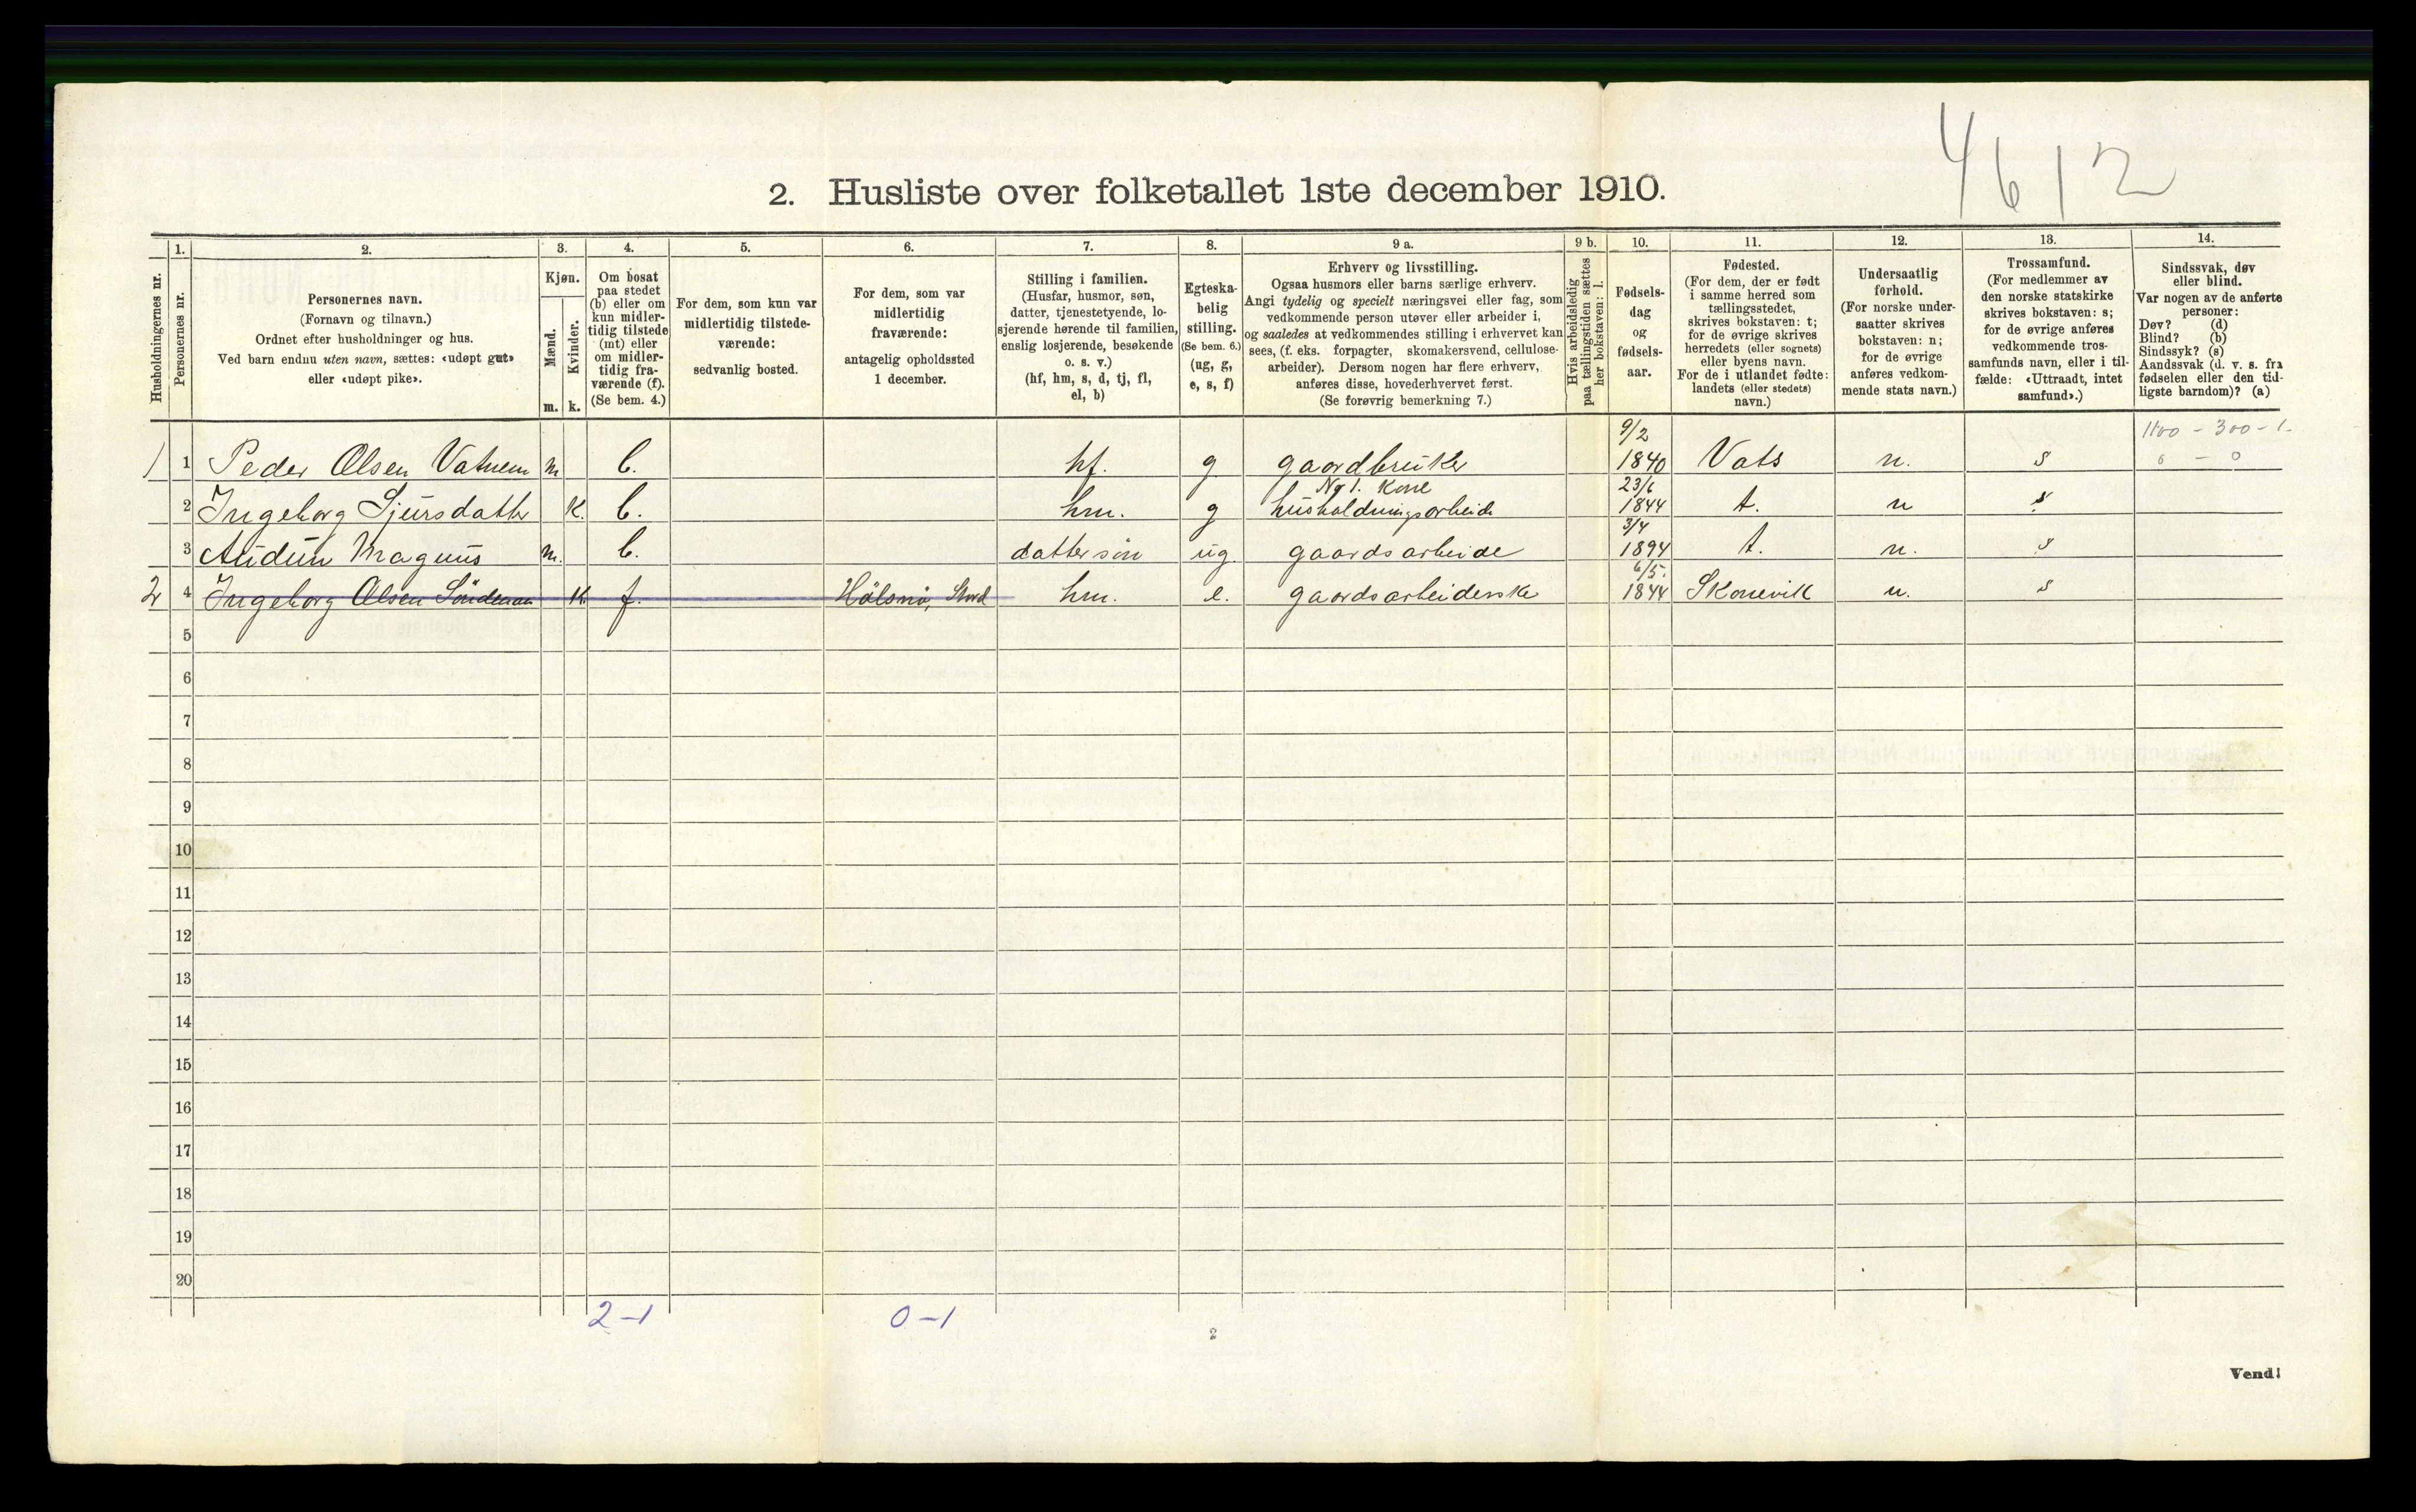 4612
2. Husliste over folketallet 1ste december 1910.
Husholdningernes nr.
1.
Personernes nr.
2.
Personernes navn.
(Fornavn og tilnavn.)
Ordnet efter husholdninger og hus.
Ved barn endnu uten navn, sættes: «udøpt gut»
eller «udøpt pike».
3.
Kjøn.
Mænd.
Kvinder.
m. k.
4.
Om bosat
paa stedet
(b) eller om
kun midler-
tidig tilstede
(mt) eller
om midler-
tidig fra-
værende (f).
(Se bem. 4.)
5.
For dem, som kun var
midlertidig tilstede-
værende:
sedvanlig bosted.
6.
For dem, som var
midlertidig
fraværende:
antagelig opholdssted
1 december.
7.
Stilling i familien.
(Husfar, husmor, søn,
datter, tjenestetyende, lo-
sjerende hørende til familien,
enslig losjerende, besøkende
o. s. v.)
(hf, hm, s, d, tj, fl,
el, b)
8.
Egteska-
belig
stilling.
(Se bem. 6.)
(ug, g,
e, s, f)
9 a.
Erhverv og livsstilling.
Ogsaa husmors eller barns særlige erhverv.
Angi tydelig og specielt næringsvei eller fag, som
vedkommende person utøver eller arbeider i,
og saaledes at vedkommendes stilling i erhvervet kan
sees, (f. eks. forpagter, skomakersvend, cellulose-
arbeider). Dersom nogen har flere erhverv,
anføres disse, hovederhvervet først.
(Se forøvrig bemerkning 7.)
9 b.
Hvis arbeidsledig
paa tællingstiden sættes
her bokstaven: l.
10.
Fødsels-
dag
og
fødsels-
aar.
11.
Fødested.
(For dem, der er født
i samme herred som
tællingsstedet,
skrives bokstaven: t;
for de øvrige skrives
herredets (eller sognets)
eller byens navn.
For de i utlandet fødte:
landets (eller stedets)
navn.)
12.
Undersaatlig
forhold.
(For norske under-
saatter skrives
bokstaven: n;
for de øvrige
anføres vedkom-
mende stats navn.)
13.
Trossamfund.
(For medlemmer av
den norske statskirke
skrives bokstaven: s;
for de øvrige anføres
vedkommende tros-
samfunds navn, eller i til-
fælde: «Uttraadt, intet
samfund».)
14.
Sindssvak, døv
eller blind.
Var nogen av de anførte
personer:
Døv? (d)
Blind? (b)
Sindssyk? (s)
Aandssvak (d. v. s. fra
fødselen eller den tid-
ligste barndom)? (a)
9/2 1100 - 300 - 1.
1 1 Peder Olsen Vatnem m b. hf. g gaardbruker 1840 Vats n. s 0 - 0
No 1. Kone 23/6
2 Ingeborg Sjursdatter K. b. hm. g husholdningsarbeide 1844 t. n s
3/4
3 Audun Magnus m. b. datterson ug. gaardsarbeide 1894 t. n. s
6/5.
2 4 Ingeborg Olsen K. f. Stord hm. e. gaardsarbeiderske 1844 Skonevik n. s
5
6
7
8
9
10
11
12
13
14
15
16
17
18
19
20
2-1 0-1
2
Vend!